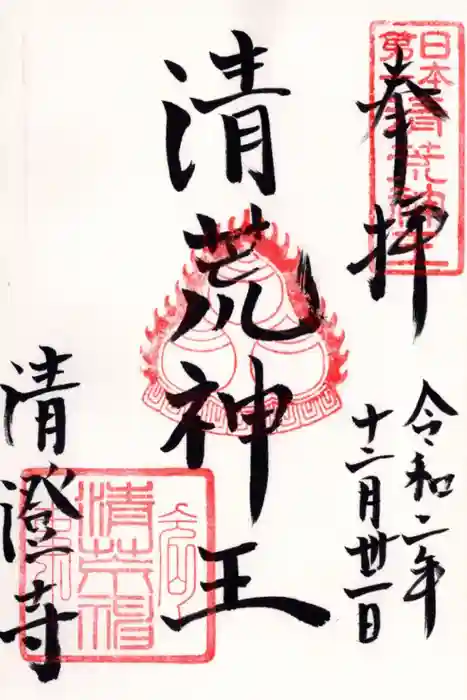 奉拝
日本
第一清荒神王
令和二年
十二月卅一日
清荒神王
清澄寺
清荒神